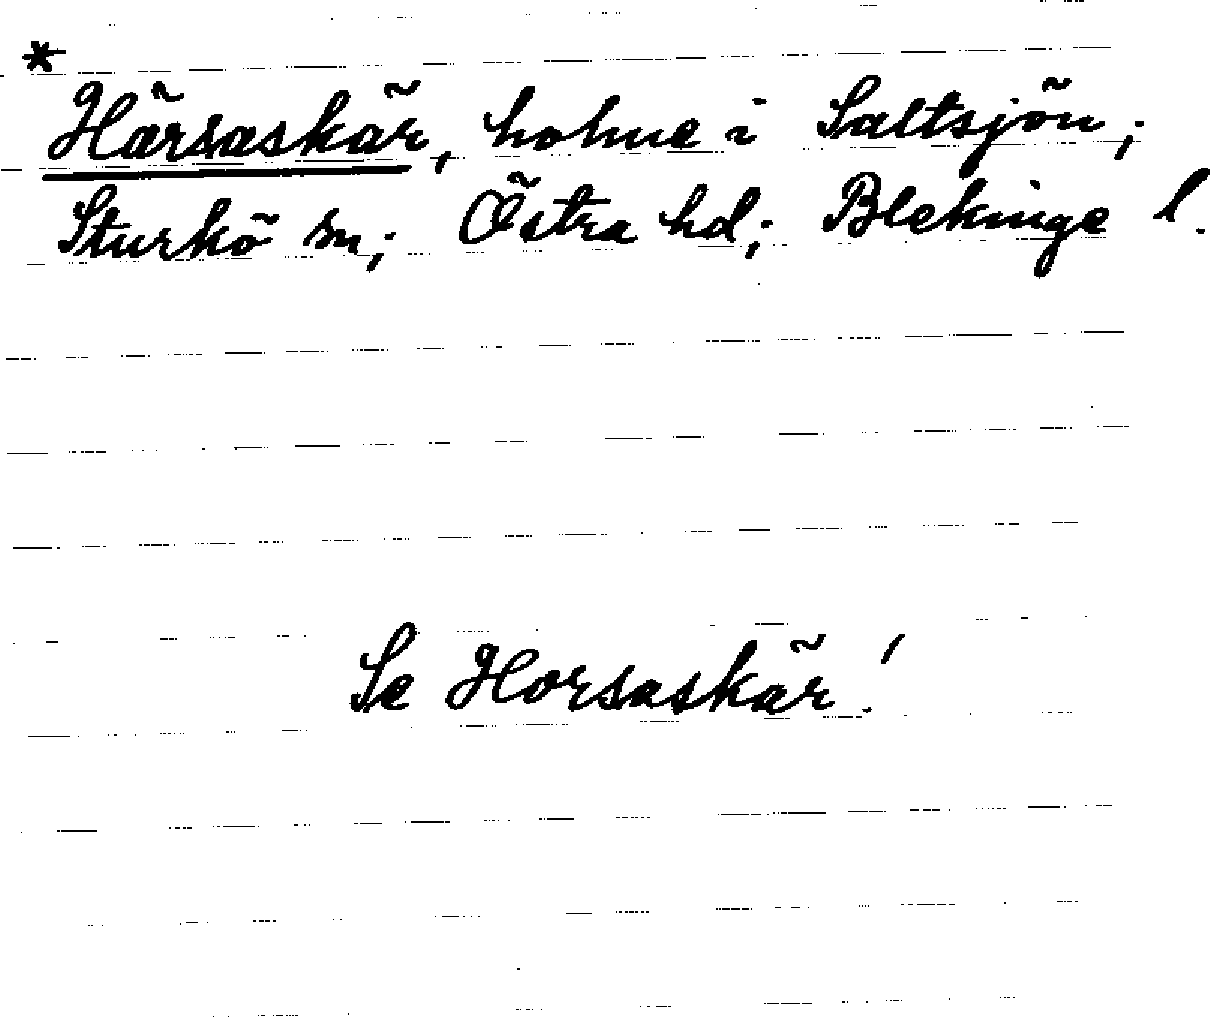 *
Härsaskär, holme i Saltsjön;
Sturkö sn; Östra hd; Blekinge l.
Se Horsaskär!